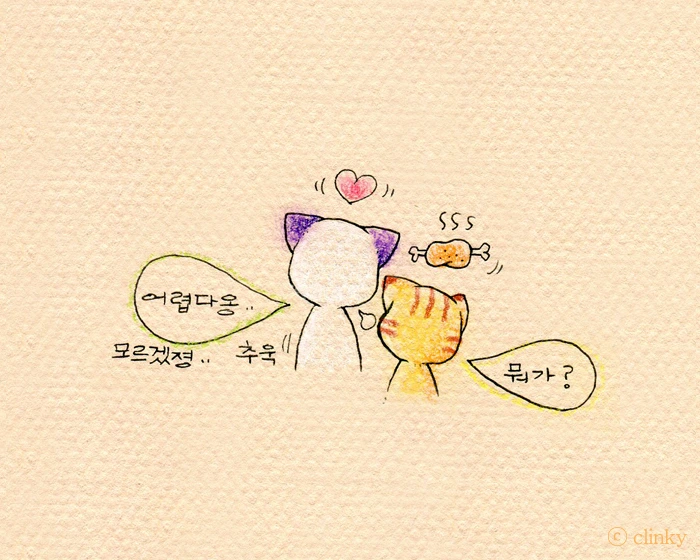 어렵다옹..
모르겠졍.. 추욱
뭐가?
ⓒ clinky